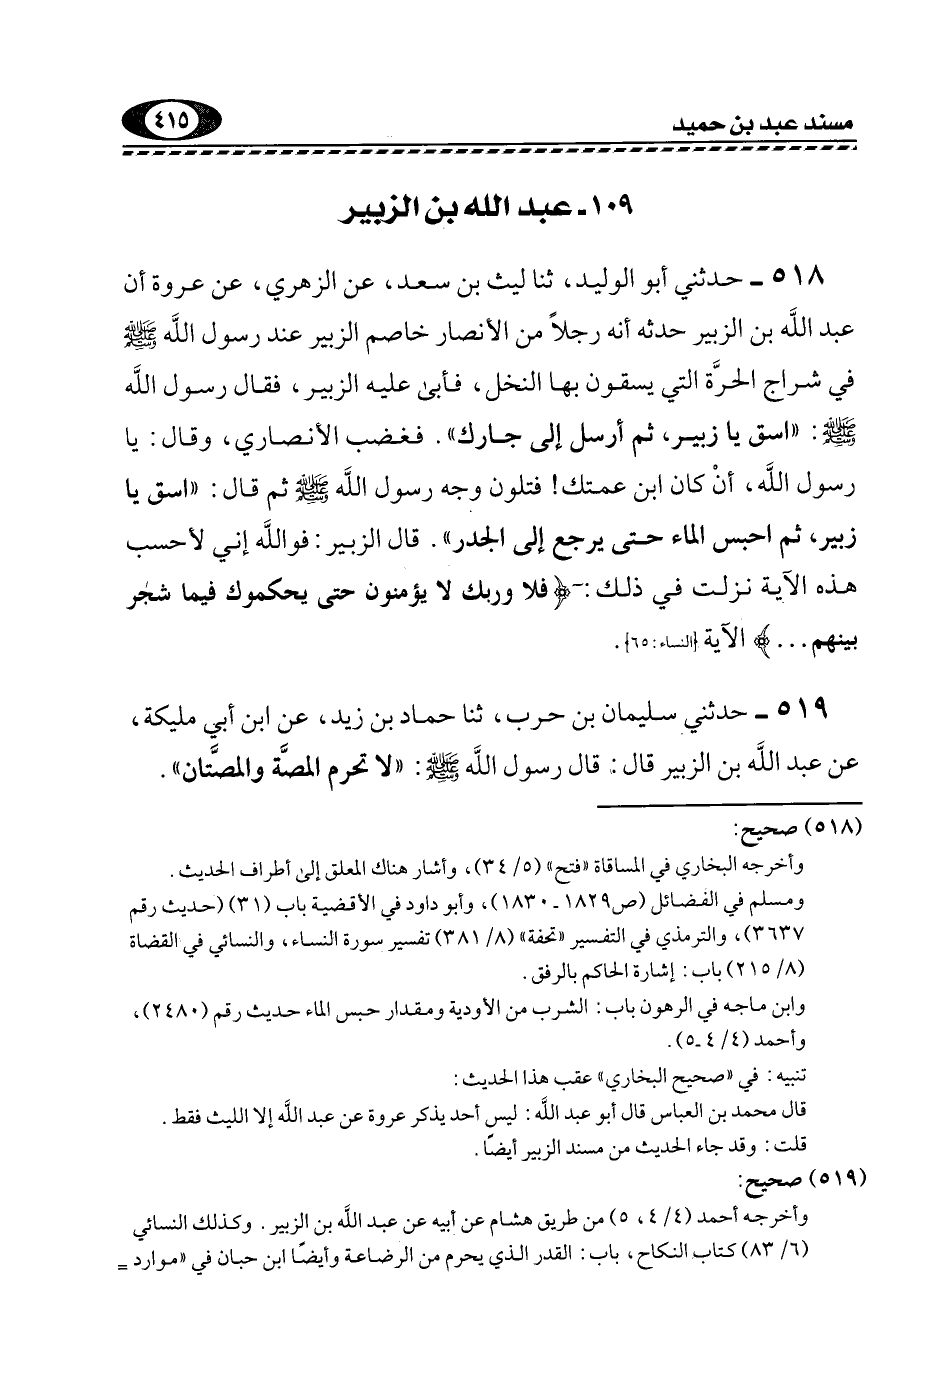 مسند عبد بن حميد
٤١٥
١٠٩ـ عبد الله بن الزبير
٥١٨ ـ حدثني أبو الوليد، ثنا ليث بن سعد، عن الزهري، عن عروة أن
عبد اللَّه بن الزبير حدثه أنه رجلاً من الأنصار خاصم الزبير عند رسول اللَّه ﷺ
في شراج الحرَّة التي يسقون بها النخل، فأبىٰ عليه الزبير، فقال رسول اللَّه
ﷺ: «اسق يا زبير، ثم أرسل إلى جارك». فغضب الأنصاري، وقال: يا
رسول اللَّه، أنْ كان ابن عمتك! فتلون وجه رسول اللَّه ﷺ ثم قال: «اسق يا
زبير، ثم احبس الماء حتى يرجع إلى الجدر». قال الزبير: فواللَّه إني لأحسب
هذه الآية نزلت في ذلك:- ﴿فلا وربك لا يؤمنون حتى يحكموك فيما شجر
بينهم...﴾ الآية [النساء: ٦٥].
٥١٩ ـ حدثني سليمان بن حرب، ثنا حماد بن زيد، عن ابن أبي مليكة،
عن عبد اللَّه بن الزبير قال: قال رسول اللَّه ﷺ: «لا تحرم المصَّة والمصَّتان».
(٥١٨) صحيح:
وأخرجه البخاري في المساقاة «فتح» (٥/ ٣٤)، وأشار هناك المعلق إلىٰ أطراف الحديث.
ومسلم في الفضائل (ص١٨٢٩ ـ ١٨٣٠)، وأبو داود في الأقضية باب (٣١) (حديث رقم
٣٦٣٧)، والترمذي في التفسير «تحفة» (٨/ ٣٨١) تفسير سورة النساء، والنسائي في القضاة
(٨/ ٢١٥) باب: إشارة الحاكم بالرفق.
وابن ماجه في الرهون باب: الشرب من الأودية ومقدار حبس الماء حديث رقم (٢٤٨٠)،
وأحمد (٤/ ٤ ـ٥).
تنبيه: في «صحيح البخاري» عقب هذا الحديث:
قال محمد بن العباس قال أبو عبد اللَّه: ليس أحد يذكر عروة عن عبد اللَّه إلا الليث فقط.
قلت: وقد جاء الحديث من مسند الزبير أيضًا.
(٥١٩) صحيح:
وأخرجه أحمد (٤/ ٤، ٥) من طريق هشام عن أبيه عن عبد اللَّه بن الزبير. وكذلك النسائي
(٦/ ٨٣) كتاب النكاح، باب: القدر الذي يحرم من الرضاعة وأيضًا ابن حبان في «موارد =